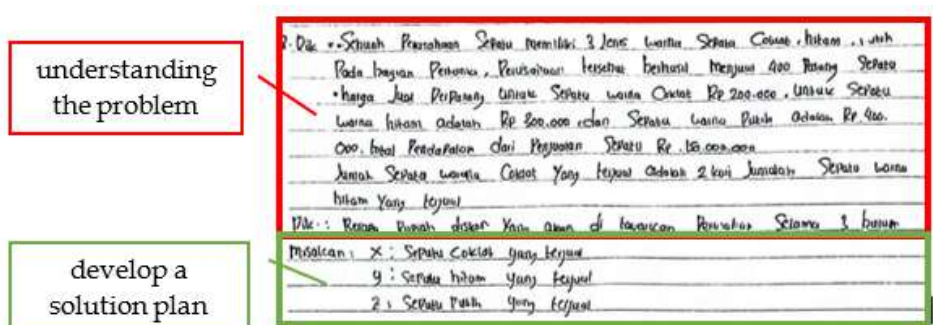 understanding
the problem
8. Dik : • Sebuah Perusahaan Sepatu memiliki 3 Jenis warna Sepatu Coklat, hitam,
Pada bagian Pertama, Perusahaan tersebut berhasil menjual 400 Pasang Sepatu
• harga Jual Perpasang untuk Sepatu warna Rp 200.000. Untuk Sepatu
warna hitam adalah Rp 300.000 dan Sepatu warna Putih adalah Rp. 400.
000. total Pendapatan dari Penjualan Sepatu Rp.
Jumlah Sepatu warna Coklat Yang terjual adalah 2 kali Jumlah Sepatu warna
hitam Yang terjual
Dit : diskon Yang akan di Selama 3
develop a
solution plan
Misalkan : X : Sepatu Coklat yang terjual
y : Sepatu hitam yang terjual
z : Sepatu Putih yang terjual